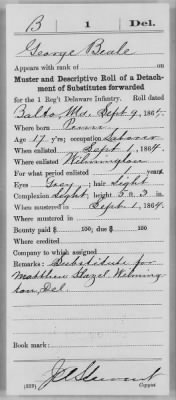 B 1 Del.
George Beale
Appears with rank of on
Muster and Descriptive Roll of a Detach-
ment of Substitutes forwarded
for the 1 Reg't Delaware Infantry. Roll dated
Balto Md, Sept 9, 1864.
Where born Penn
Age 17 y'rs; occupation Laborer
When enlisted Sept 1, 1864.
Where enlisted Wilmington
For what period enlisted years.
Eyes Grey; hair Light
Complexion Light; height 5 ft. 3 in.
When mustered in Sept. 1, 1864.
Where mustered in
Bounty paid $ 100; due $ 100
Where credited
Company to which assigned
Remarks: Substitute for
Matthew Hazel, Wilming
ton, Del.
Book mark:
(339) Copyist.